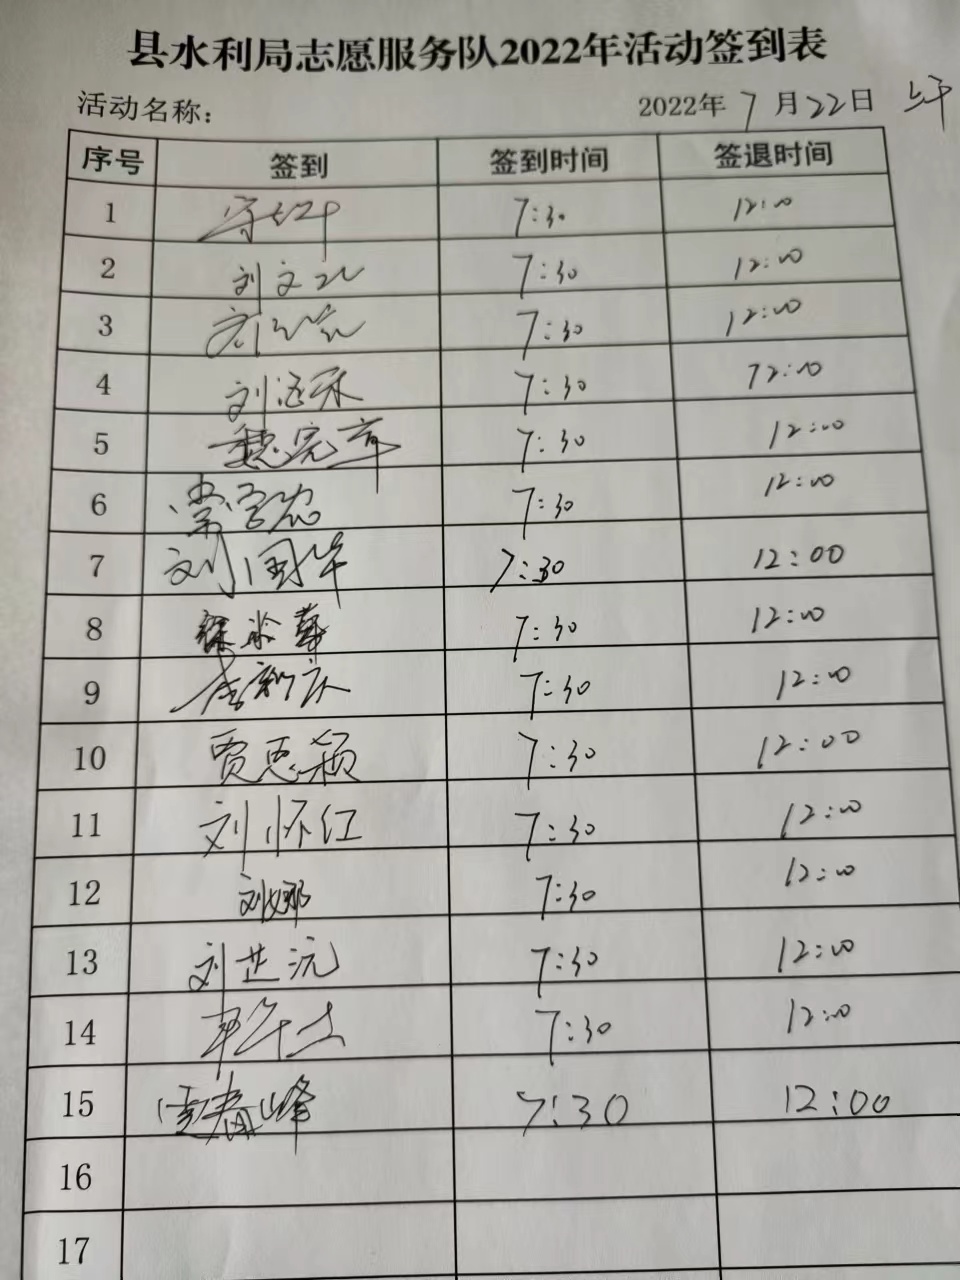 县水利局志愿服务队2022年活动签到表
活动名称： 2022年 7 月 22 日 上午
序号 签到 签到时间 签退时间
1 7:30 12:00
2 刘文 7:30 12:00
3 7:30 12:00
4 刘 7:30 12:00
5 魏宪章 7:30 12:00
6 7:30 12:00
7 刘国华 7:30 12:00
8 7:30 12:00
9 7:30 12:00
10 贾思颖 7:30 12:00
11 刘怀红 7:30 12:00
12 刘娜 7:30 12:00
13 刘芷沅 7:30 12:00
14 7:30 12:00
15 春峰 7:30 12:00
16
17